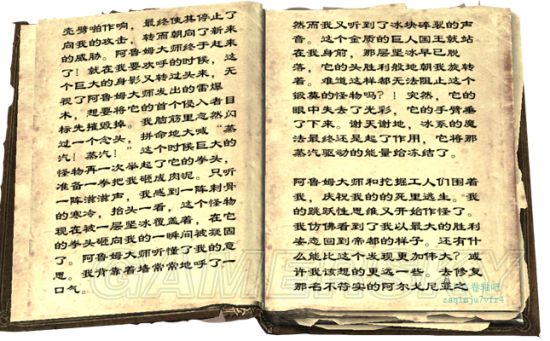 壳劈啪作响，最终使其停止了
向我的攻击，转而朝向了新来
的威胁。阿鲁姆大师终于起来
了！就在我要欢呼的时候，这
个巨大的身影又转过头来，无
视了阿鲁姆大师发出的雷爆
术，想要将它的首个侵入者目
标先摧毁掉。我脑筋里忽然闪
过一个念头，拼命地大喊“蒸
汽！蒸汽！”这个时候巨大的
怪物再一次举起了它的拳头，
准备一拳把我砸成肉泥。只听
一阵滋滋声，我感到一阵刺骨
的寒冷，抬头一看，这个怪物
现在被一层坚冰覆盖着，在它
的拳头砸向我的一瞬间被凝固
了。阿鲁姆大师听懂了我的意
思。我背靠着墙常常地呼了一
口气。
然而我又听到了冰块碎裂的声
音。这个金质的巨人国王就站
在我身前，那层坚冰早已脱
落，它的头胜利般地朝我旋转
着。难道这样都无法阻止这个
锻莫的怪物吗？！突然，它的
眼中失去了光彩，它的手臂垂
了下来。谢天谢地，冰系的魔
法最终还是起了作用，它将那
蒸汽驱动的能量给冻结了。
阿鲁姆大师和挖掘工人们围着
我，庆祝我的的死里逃生。我
的跳跃性思维又开始作怪了。
我仿佛看到了我以最大的胜利
姿态回到帝都的样子。还有什
么能比这个发现更加伟大？或
许我该想的更远一些。去修复
那名不符实的阿尔戈尼亚之
GAMERSKY
卷轴吧
zaqlmju7vfr4